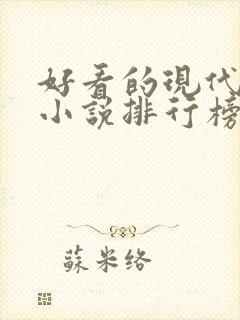 好看的現代
小說排行榜
蘇米络